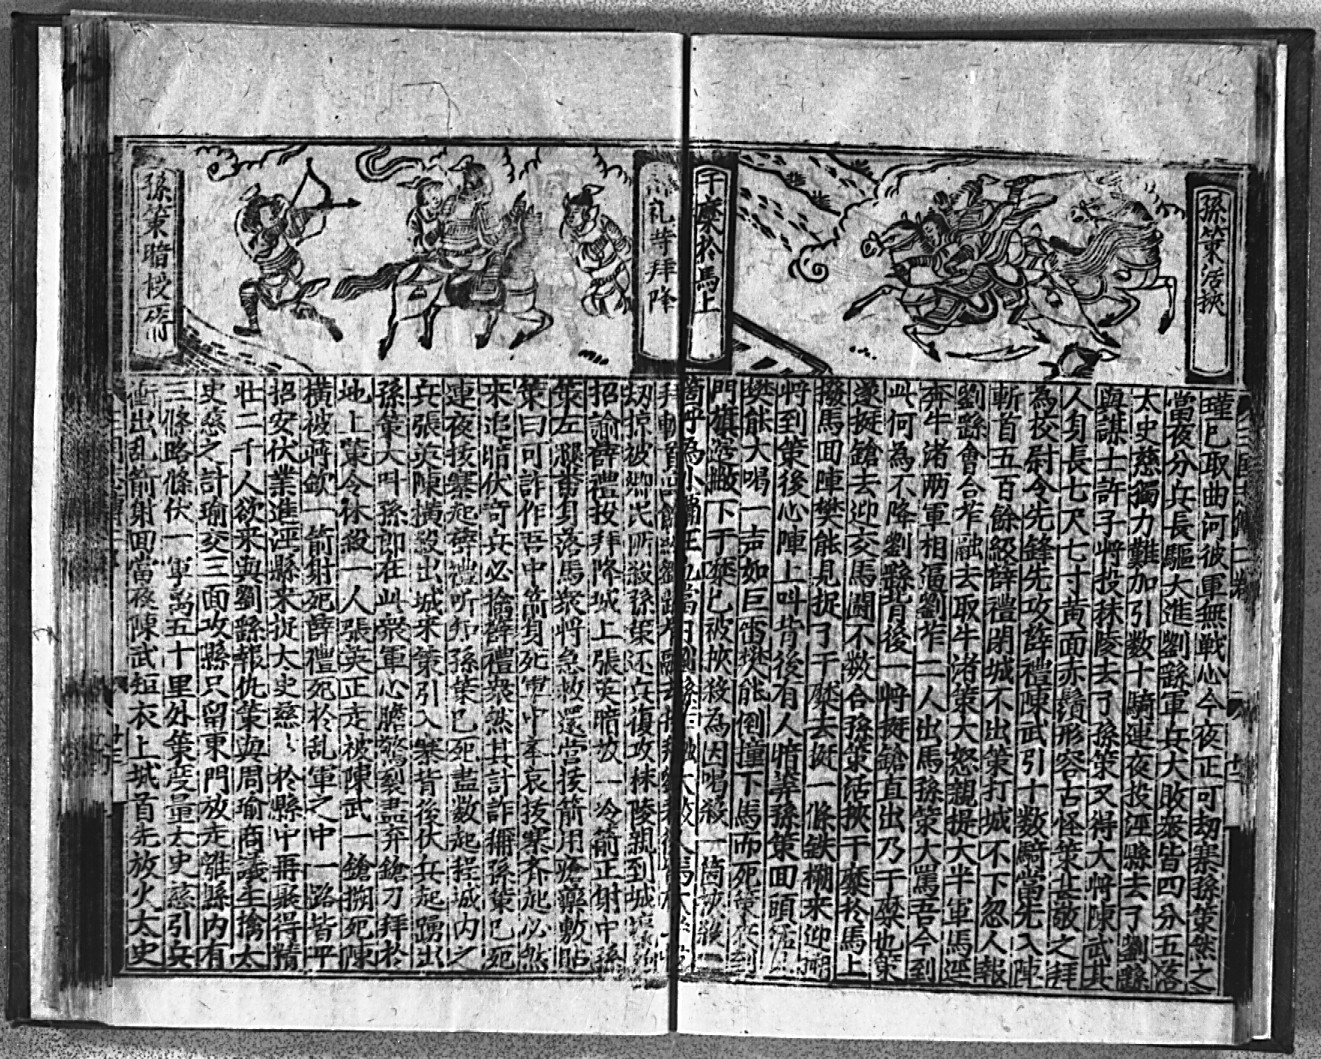 孫策活挾
于糜於馬上
瑾已取曲河彼軍無戰心今夜正可刼寨孫策然之
當夜分兵長驅大進劉繇軍兵大敗衆皆四分五落
太史慈獨力難加引数十騎連夜投涇縣去了劉繇
與謀士許子將投秣陵去了孫策又得大將陳武其
人身長七尺七寸黄面赤鬚形容古怪策甚敬之拜
為校尉令先鋒先攻薛禮陳武引十数騎當先入陣
斬首五百餘級薛禮閉城不出策打城不下忽人報
劉繇會合笮融去取牛渚策大怒親提大半軍馬迳
奔牛渚两軍相逼劉笮二人出馬孫策大罵吾今到
此何為不降劉繇背後一將挺鎗直出乃于糜也策
遂挺鎗去迎交馬鬪不数合孫策活挾于糜於馬上
撥馬回陣樊能見捉了于糜去挺一條鉄槊来迎
將到策後心陣上叫背後有人暗筭孫策回頭
樊能大喝一声如巨雷樊能倒撞下馬而死策
門旗下于糜已被挾殺為因喝殺一
劉繇
刼掠被鄉民所殺孫策还兵復攻秣陵親到城
招諭薛禮投拜降城上張英暗放一冷箭正射中孫
策左腿番身落馬衆將急救還營抜箭用瘡藥敷貼
策曰可詐作吾中箭身死軍中舉哀抜寨齐起必然
来追暗伏竒兵必擒薛禮衆然其計詐稱孫策已死
連夜抜寨起薛禮听知孫策已死盡数起程城内之
兵張英陳横殺出城来策引入寨背後伏兵起踴出
孫策大叫孫郎在此衆軍心膽驚裂盡弃鎗刀拜於
地上策令休殺一人張英正走被陳武一鎗搠死陳
横被蔣欽一箭射死薛禮死於乱軍之中一路皆平
招安伏業進涇縣来捉太史慈〻於縣中再聚得精
壮二千人欲来與劉繇報仇策與周瑜商議生擒太
史慈之計瑜交三面攻縣只留東門放走離縣内有
三條路條伏一軍离五十里外策度量太史慈引兵
衝出乱箭射回當夜陳武短衣上城首先放火太史
礼等拜降
孫策暗授